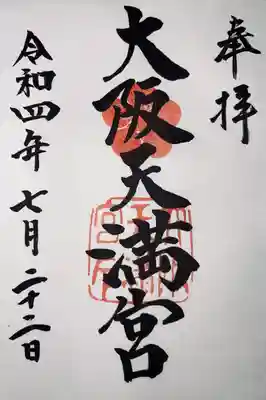 奉拝
大阪天満宮
令和四年七月二十二日